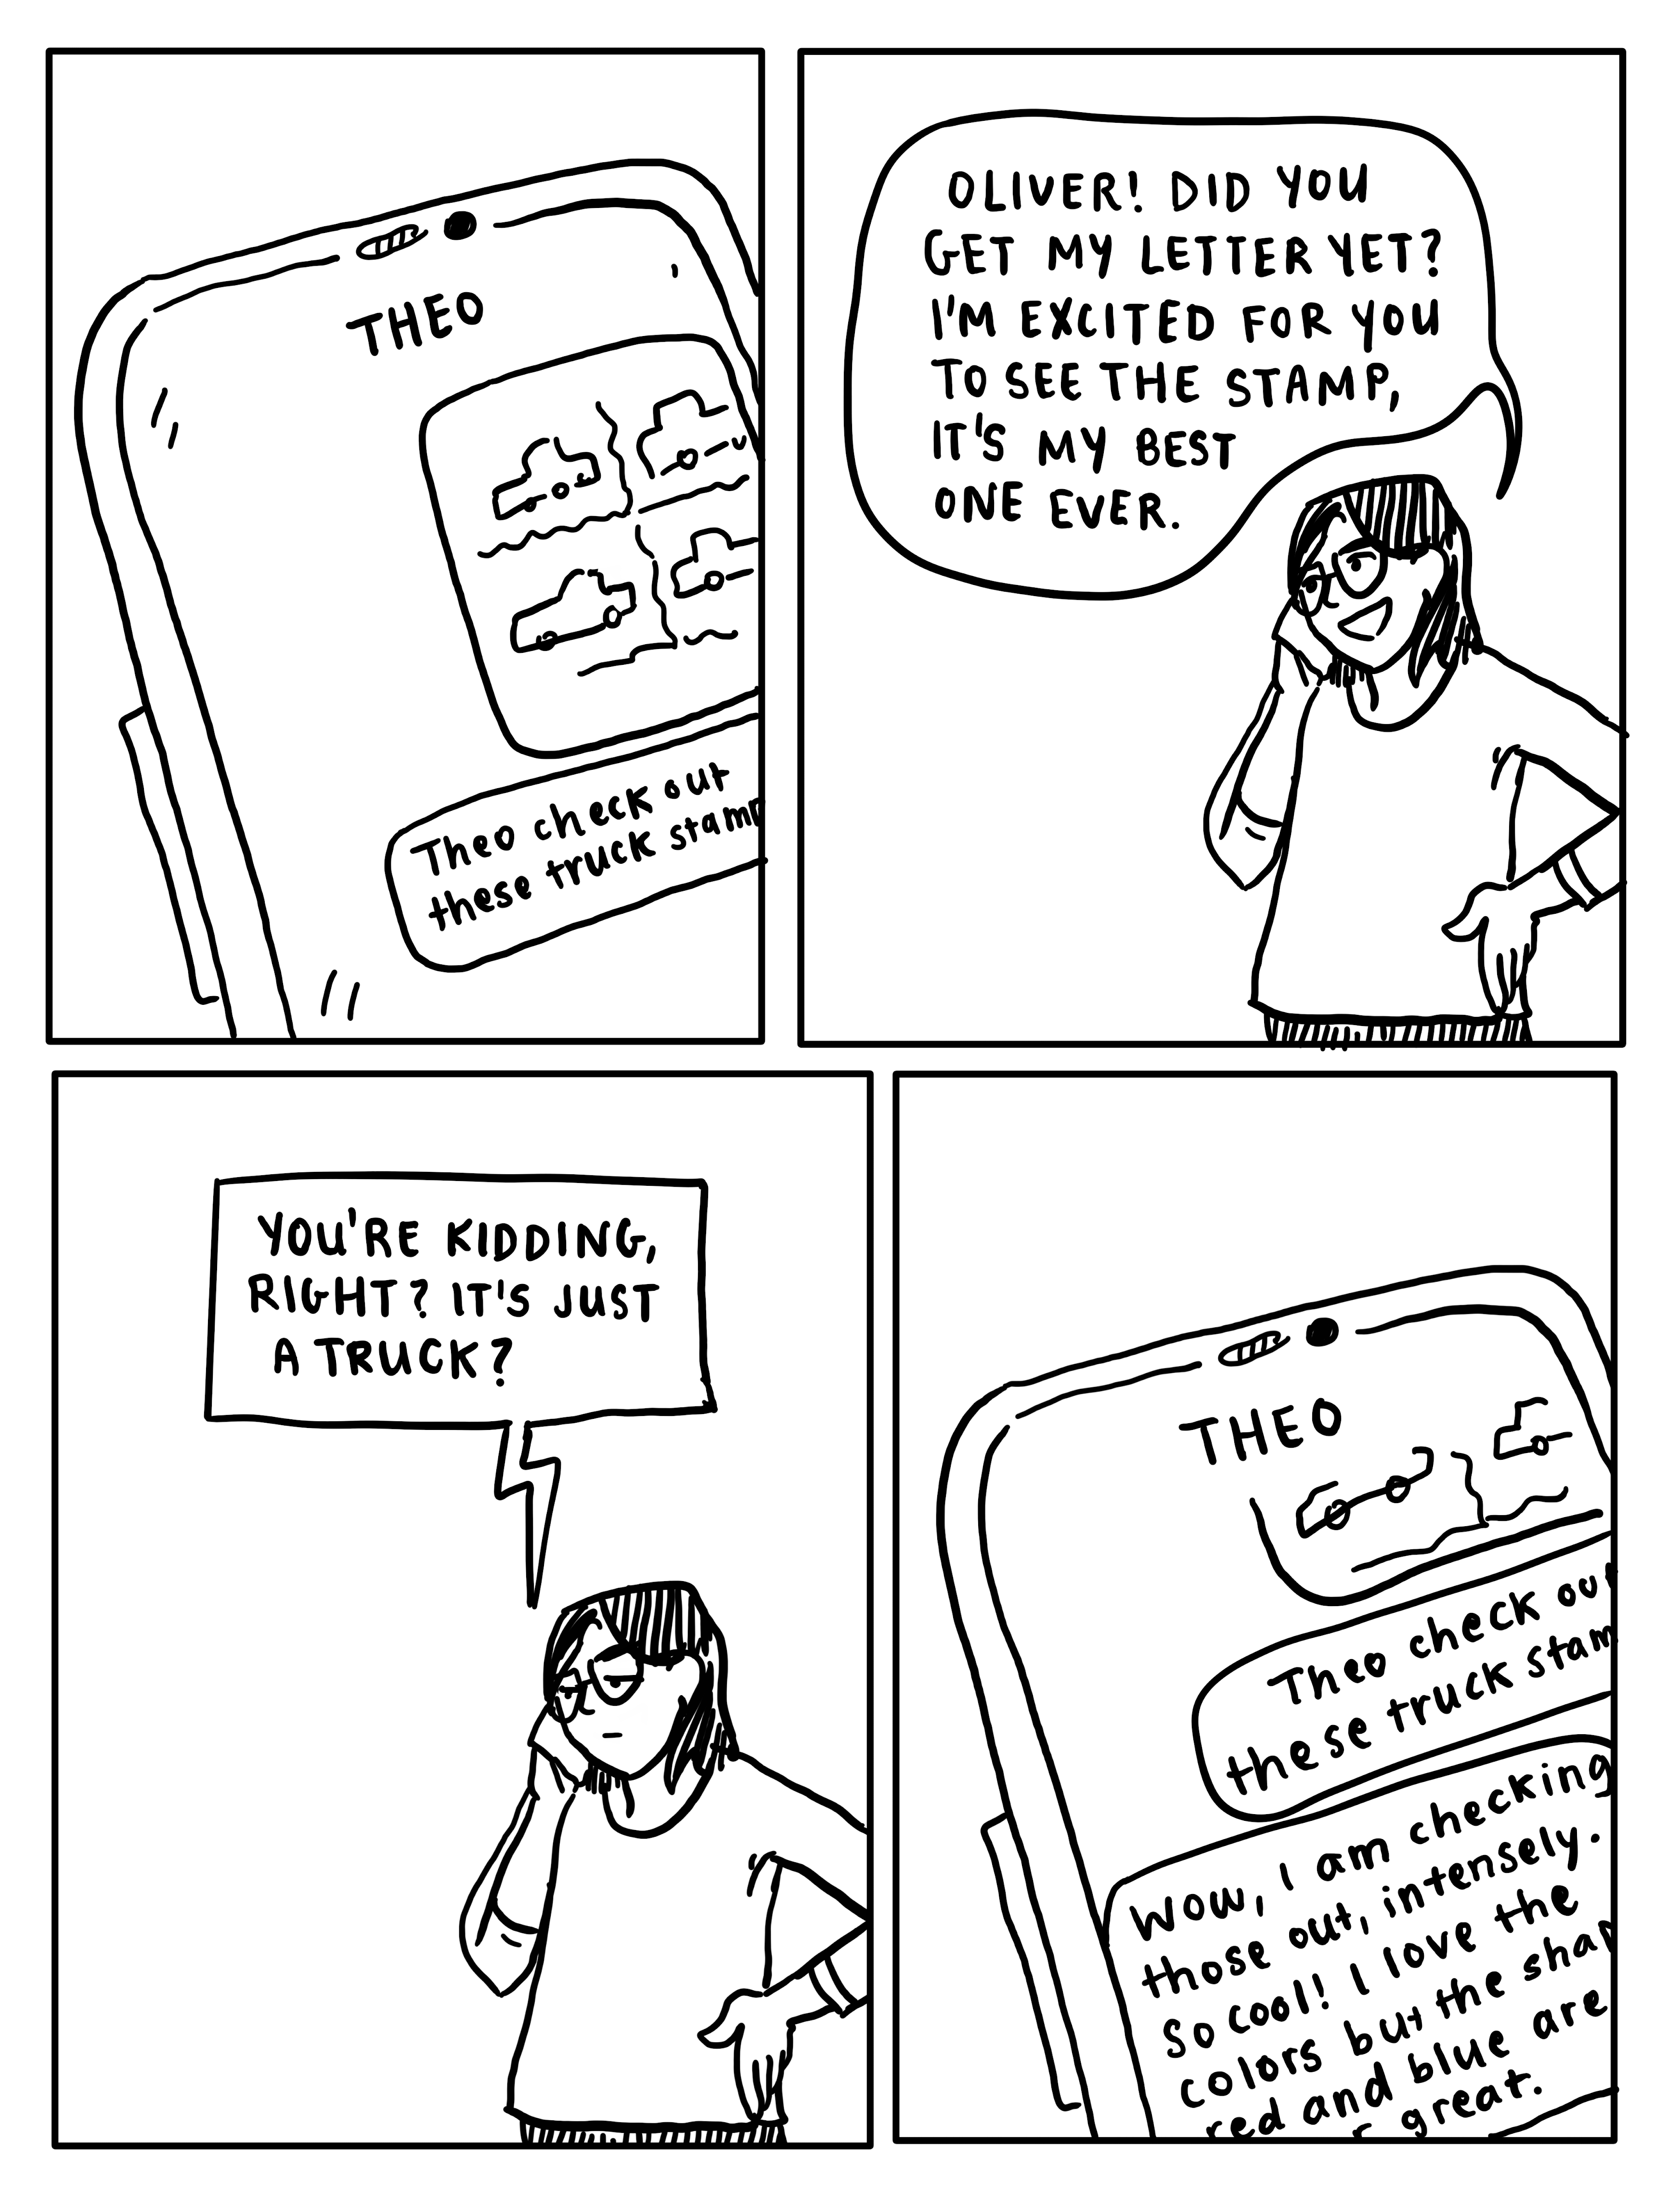 THEO
Theo check out
these truck stamp
OLIVER! DID YOU
GET MY LETTER YET?
I'M EXCITED FOR YOU
TO SEE THE STAMP,
IT'S MY BEST
ONE EVER.
YOU'RE KIDDING,
RIGHT? IT'S JUST
A TRUCK?
THEO
Theo check out
these truck stam
Wow, I am checking
those out, intensely.
So cool! I love the
colors but the shap
red and blue are
great.